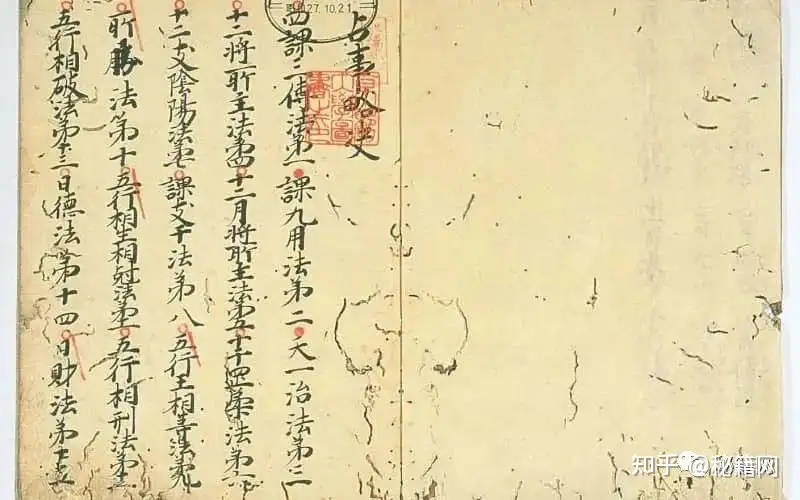 占事略决
四課三傳法第一 課九用法第二 天一治法第三
十二將所主法第四 十二月將所主法第五 十干罡柔法第六
十二支陰陽法第七 課支干法第八 五行王相等法第九
所勝法第十 五行相生相尅法第十一 五行相刑法第十二
五行相破法第十三 日德法第十四 日財法第十五
27.10.21
知乎 @秘籍网